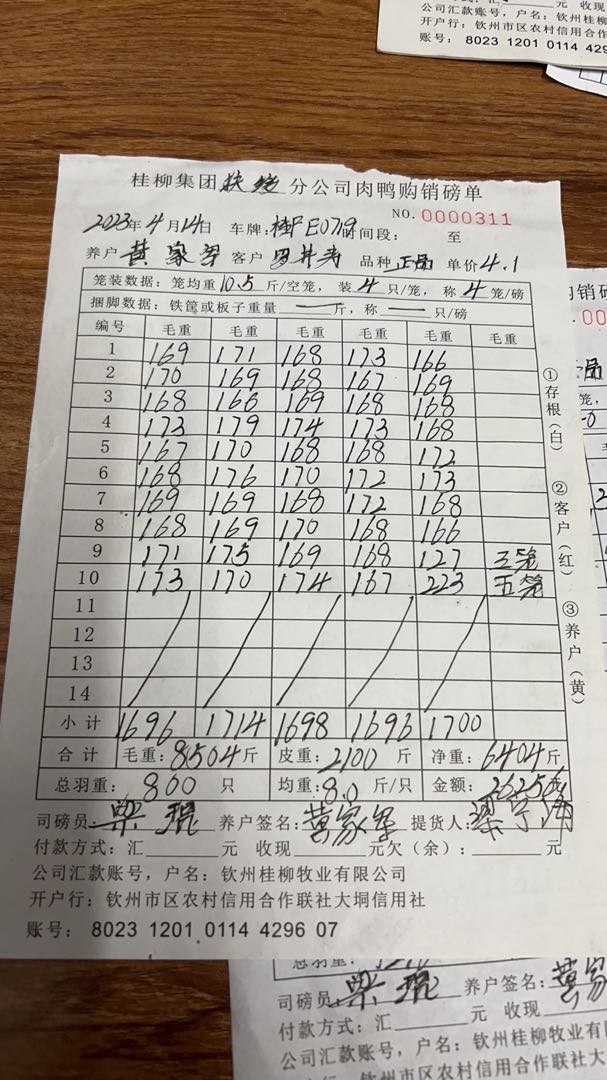 公司汇款账号，户名：钦州桂柳
开户行：钦州市区农村信用合作
账号：8023 1201 0114 429
桂柳集团扶绥分公司肉鸭购销磅单
NO.0000311
2023年4月14日 车牌：桂FE0719 时间段： 至
养户 黄家军 客户 品种 正品 单价 4.1
笼装数据：笼均重10.5斤/空笼，装4只/笼，称4笼/磅
捆脚数据：铁筐或板子重量 — 斤，称 — 只/磅
编号 毛重 毛重 毛重 毛重 毛重 毛重
1 169 171 168 173 166
2 170 169 168 167 169
3 168 166 169 168 168
4 173 179 174 173 168
5 167 170 168 168 172
6 168 176 170 172 173
7 169 169 168 172 168
8 168 169 170 168 166
9 171 175 169 168 127 三笼
10 173 170 174 167 223 五笼
11
12
13
14
小计 1696 1714 1698 1696 1700
合计 毛重：8504斤 皮重：2100斤 净重：6404斤
总羽重：800只 均重：8.0斤/只 金额：26256元
司磅员： 养户签名：黄家军 提货人：
付款方式：汇 元 收现 元欠（余）： 元
公司汇款账号，户名：钦州桂柳牧业有限公司
开户行：钦州市区农村信用合作联社大垌信用社
账号：8023 1201 0114 4296 07
①存根（白）
②客户（红）
③养户（黄）
总羽重：
司磅员： 养户签名：黄家
付款方式：汇 元 收现
公司汇款账号，户名：钦州桂柳牧业有
开户行：钦州市区农村信用合作联社大